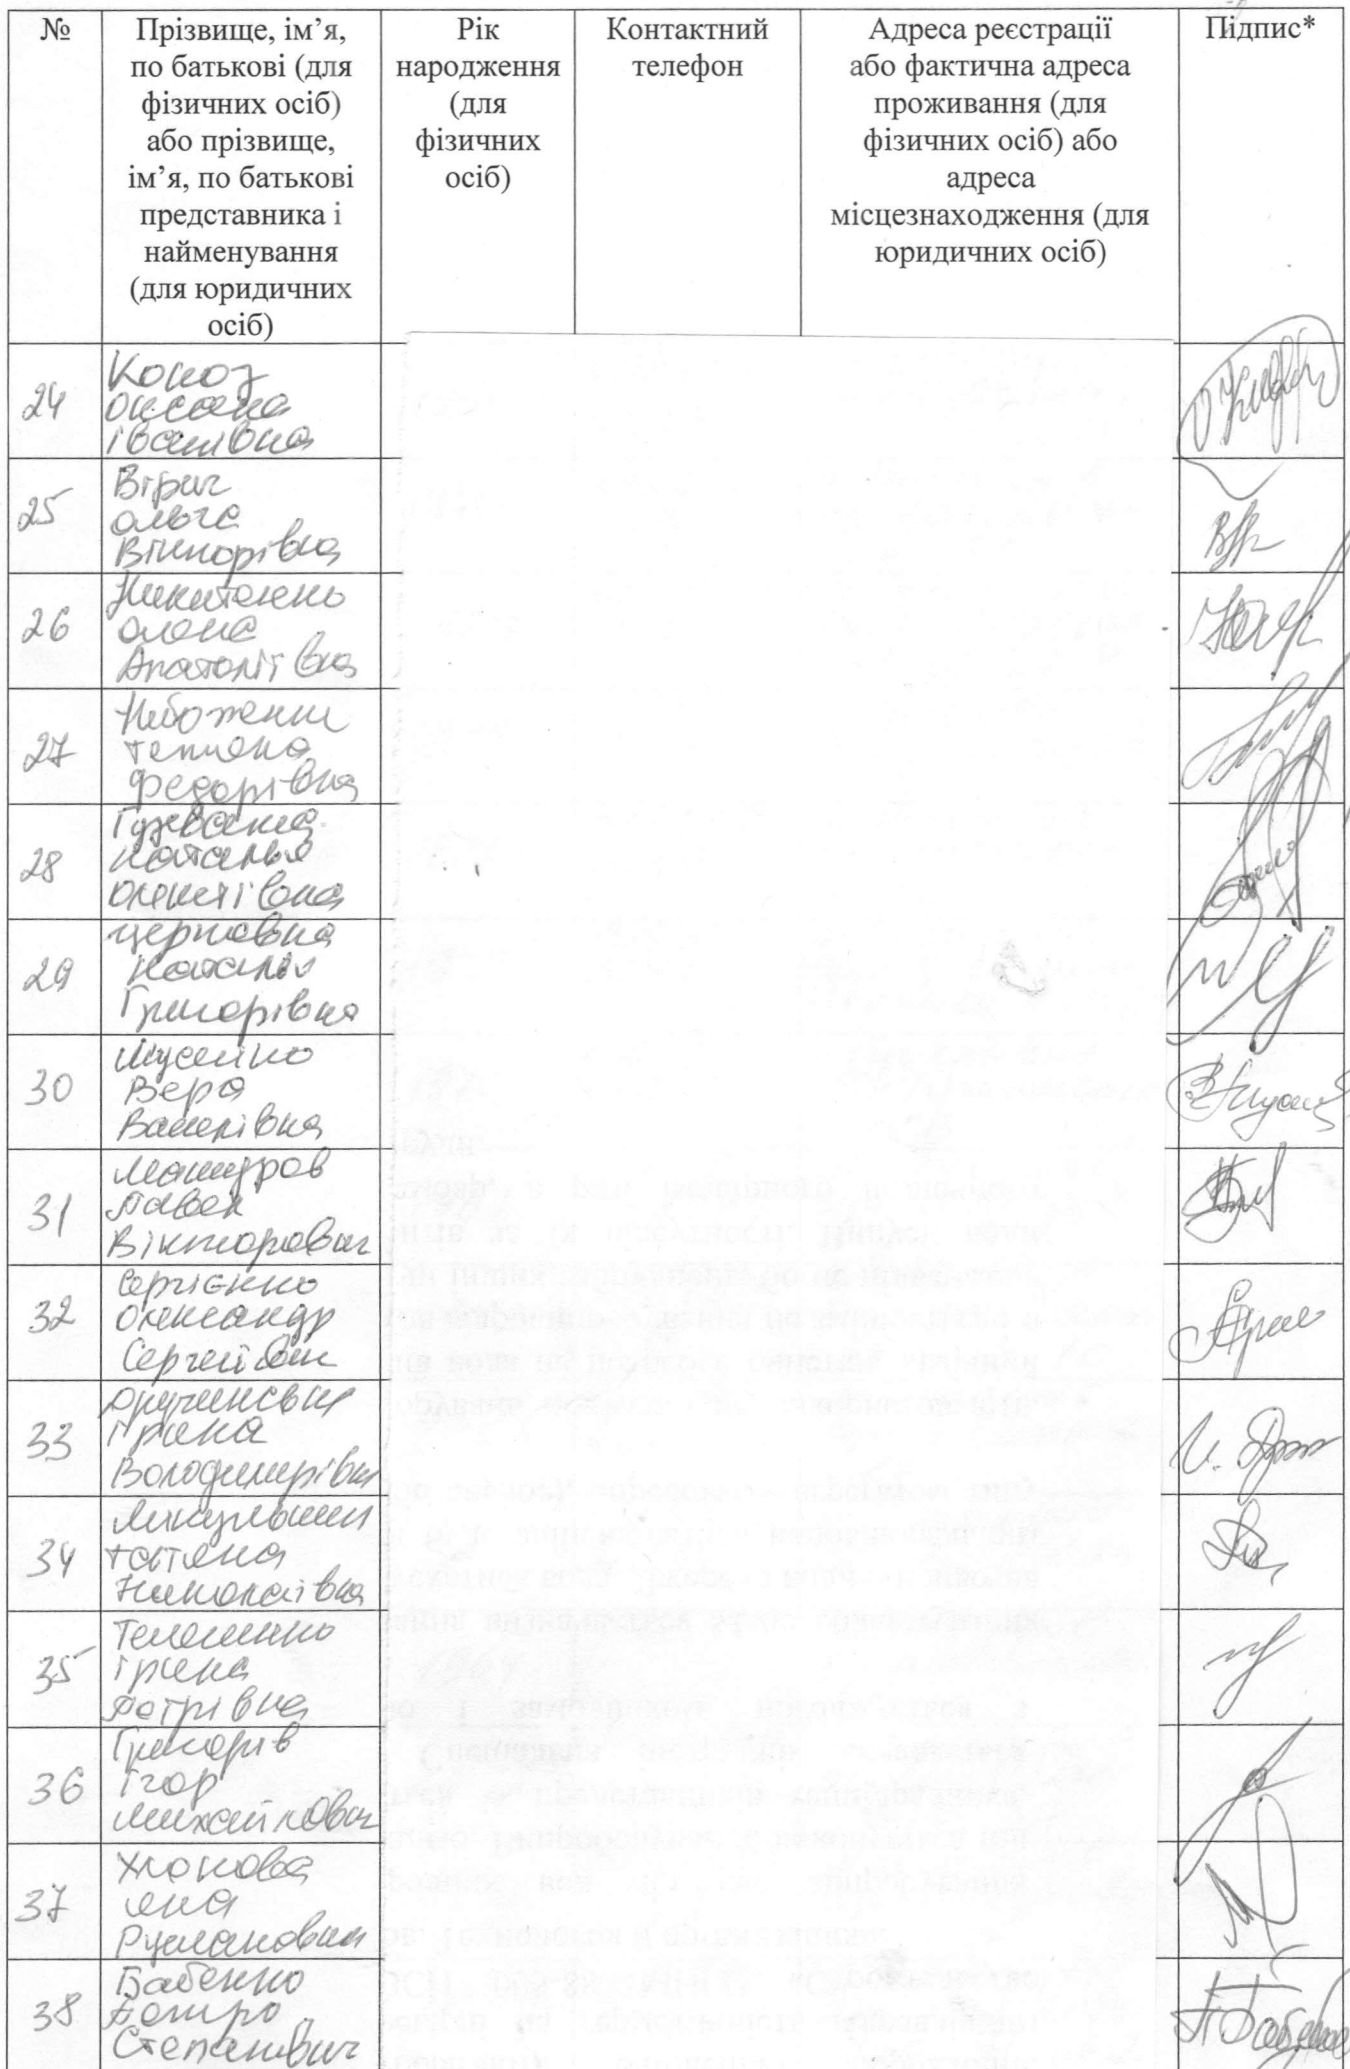 №
Прізвище, ім’я,
по батькові (для
фізичних осіб)
або прізвище,
ім’я, по батькові
представника і
найменування
(для юридичних
осіб)
Рік
народження
(для
фізичних
осіб)
Контактний
телефон
Адреса реєстрації
або фактична адреса
проживання (для
фізичних осіб) або
адреса
місцезнаходження (для
юридичних осіб)
Підпис*
24
Оксана
Іванівна
25
Віріч
Ольга
Вікторівна
26
Олена
Анатоліївна
27
Тетяна
Федорівна
28
Наталья
Олексіївна
29
Церковна
Наталія
Григорівна
30
Мусенко
Вера
Валеріївна
31
Павел
Вікторович
32
Сергієнко
Олександр
Сергейович
33
Ірина
Володимирівна
34
Татяна
Николаївна
35
Ірина
Петрівна
36
Григорів
Ігор
Михайлович
37
Яна
Руслановна
38
Бабенко
Петро
Степанович